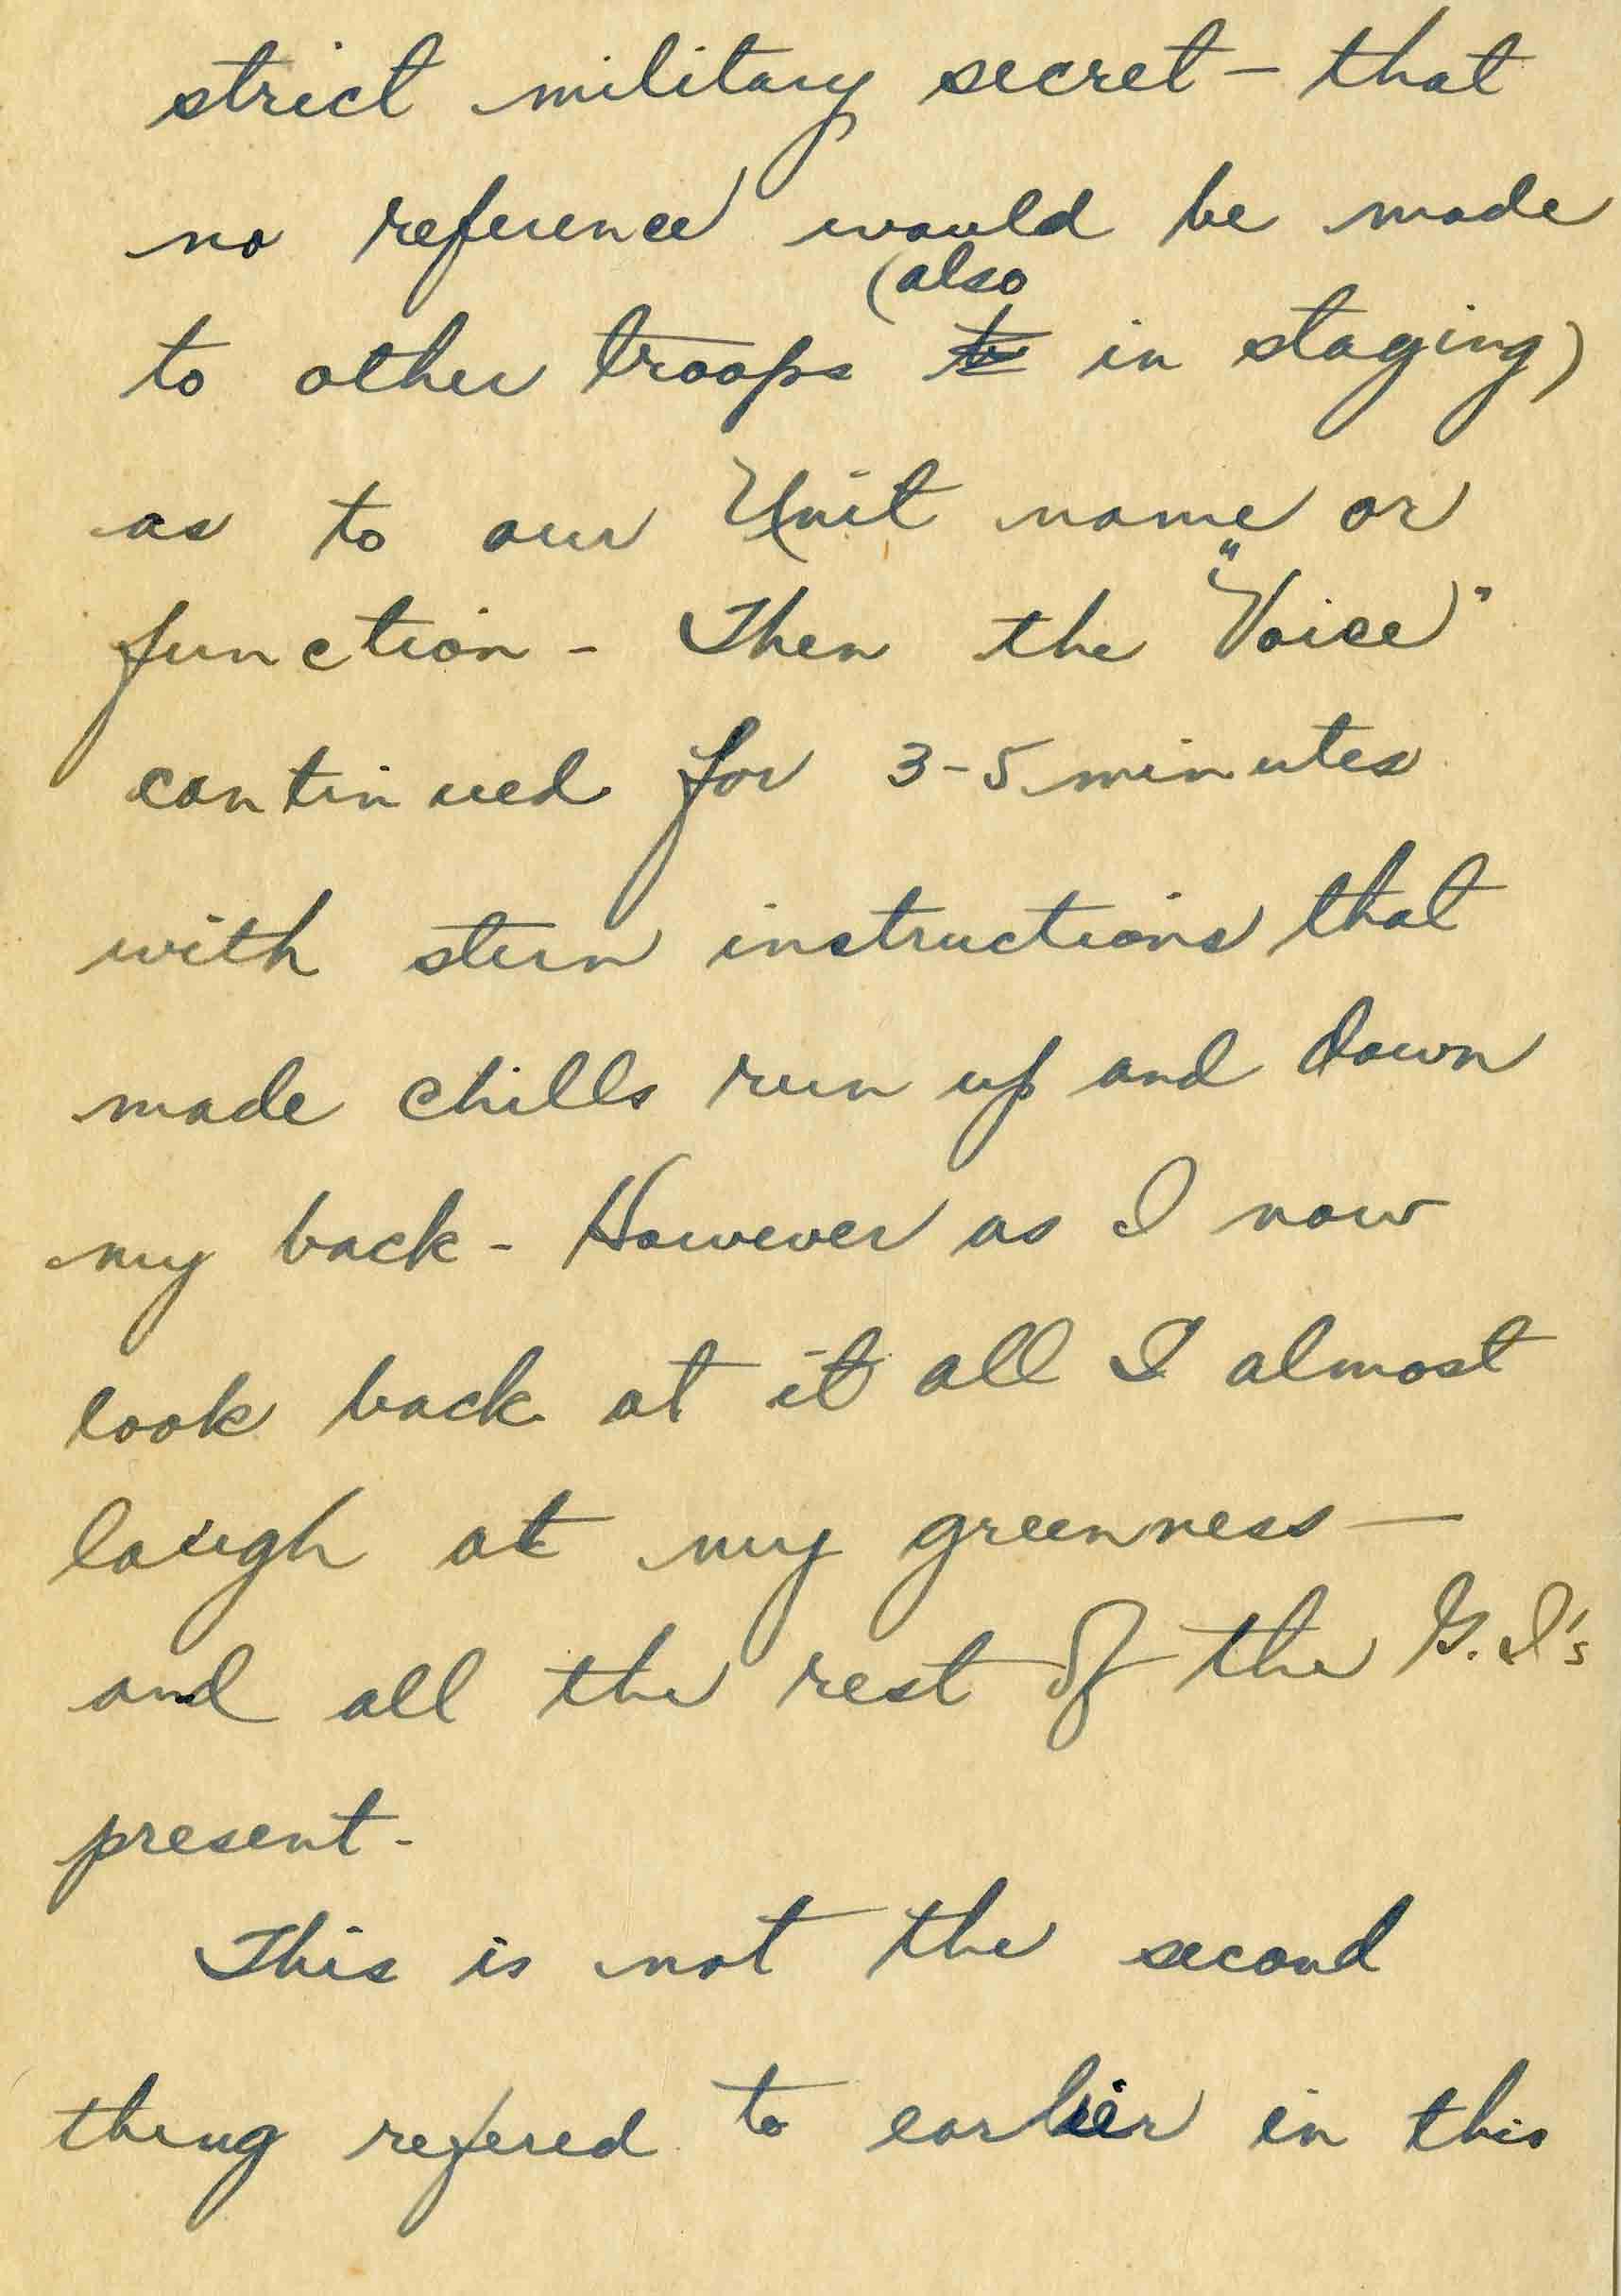 strict military secret – that
no reference would be made
(also
to other troops in staging)
as to our Unit name or
function - Then the "Voice"
continued for 3-5 minutes
with stern instructions that
made chills run up and down
my back - However as I now
look back at it all I almost
laugh at my greenness —
and all the rest of the G.I's
present -
This is not the second
thing refered to earlier in this